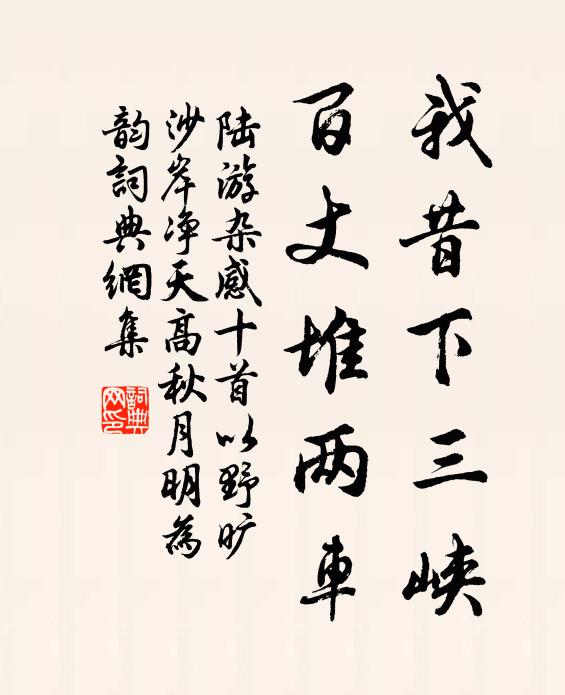 我昔下三峡
百丈堆两車
陆游杂感十首以野旷
沙岸净天高秋月明為
韵詞典網集
詞典
网印